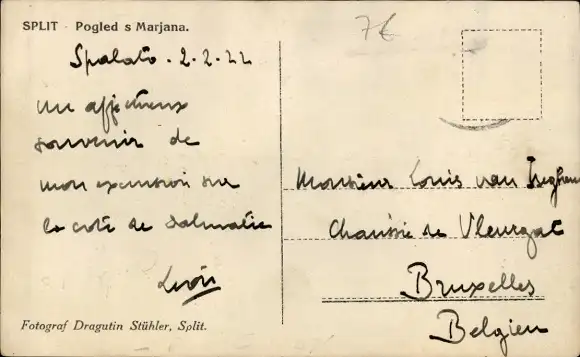 SPLIT - Pogled s Marjana.
7€
Spalato . 2.2.22
un affectueux
souvenir de
mon excursion sur
la cote de Dalmatie
Léon
Fotograf Dragutin Stühler, Split.
Monsieur Louis van
Chaussée de Vleurgat
Bruxelles
Belgien